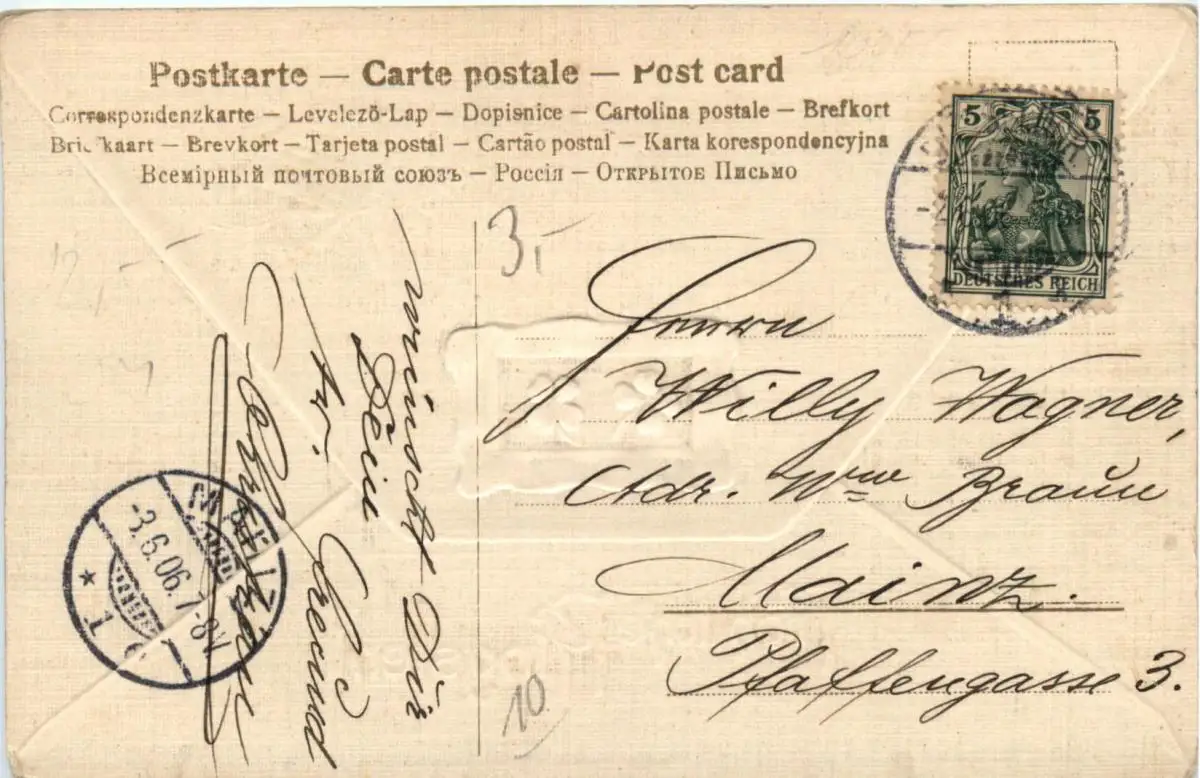 Postkarte — Carte postale — Post card
Correspondenzkarte — Levelező-Lap — Dopisnice — Cartolina postale — Brefkort
Briefkaart — Brevkort — Tarjeta postal — Cartão postal — Karta korespondencyjna
Всемірный почтовый союзъ — Россія — Открытое Письмо
5 5
DEUTSCHES REICH
3,-
12,-
Herrn
Willy Wagner,
Adr. Wwe Braun
Mainz.
Pfaffengasse 3.
wünscht Dir
Dein
tr. Freund
MAINZ
-3.6.06.7-8V.
* 1
10